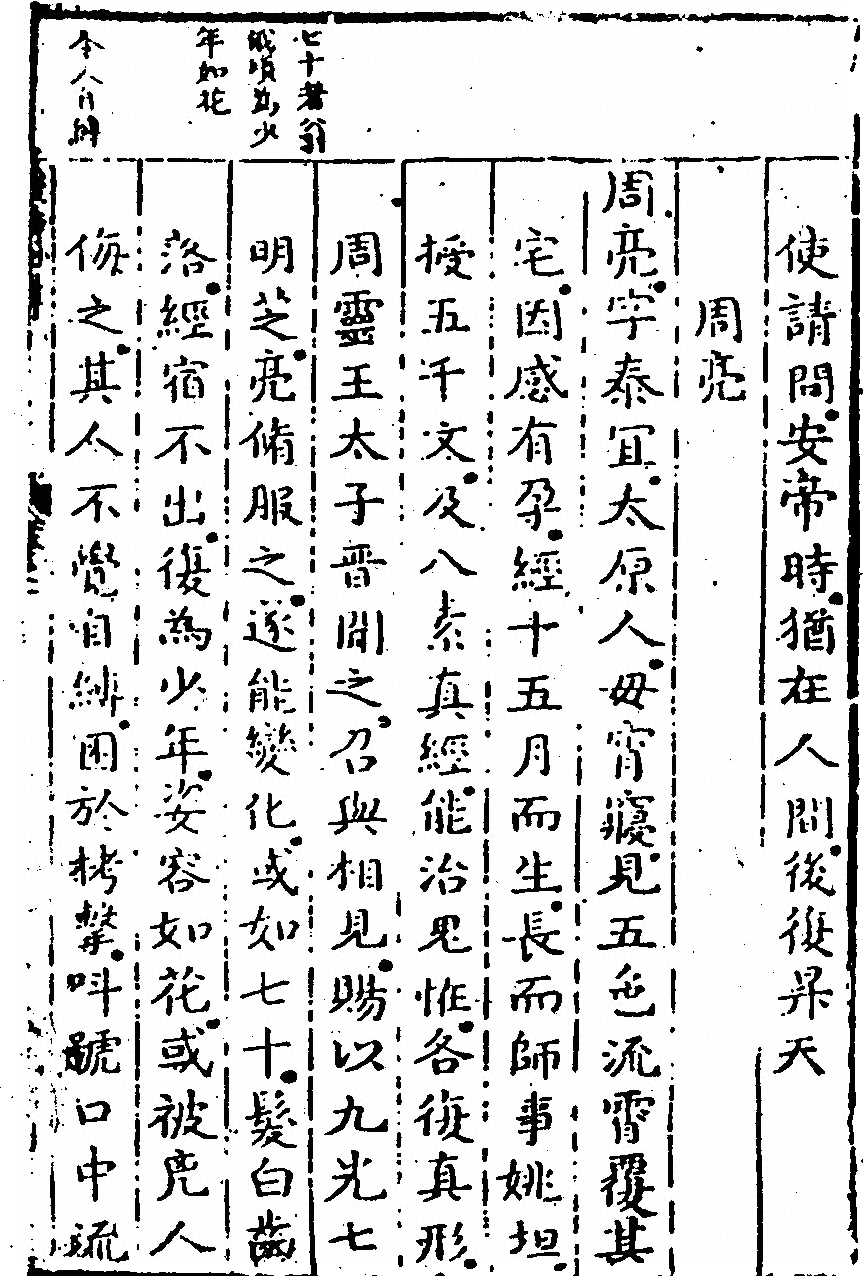 七十耆翁
俄頃為少
年如花
令人自縛
使請問安帝時猶在人間後復昇天
周亮
周亮字泰宜太原人母宵寢見五色流霄覆其
宅因感有孕經十五月而生長而師事姚坦
授五千文及八素真經能治鬼恠各復真形
周靈王太子晉聞之召與相見賜以九光七
明芝亮脩服之遂能變化或如七十髮白齒
落經宿不出復為少年姿容如花或被凶人
侮之其人不覺自縛困於栲擊叫號口中流